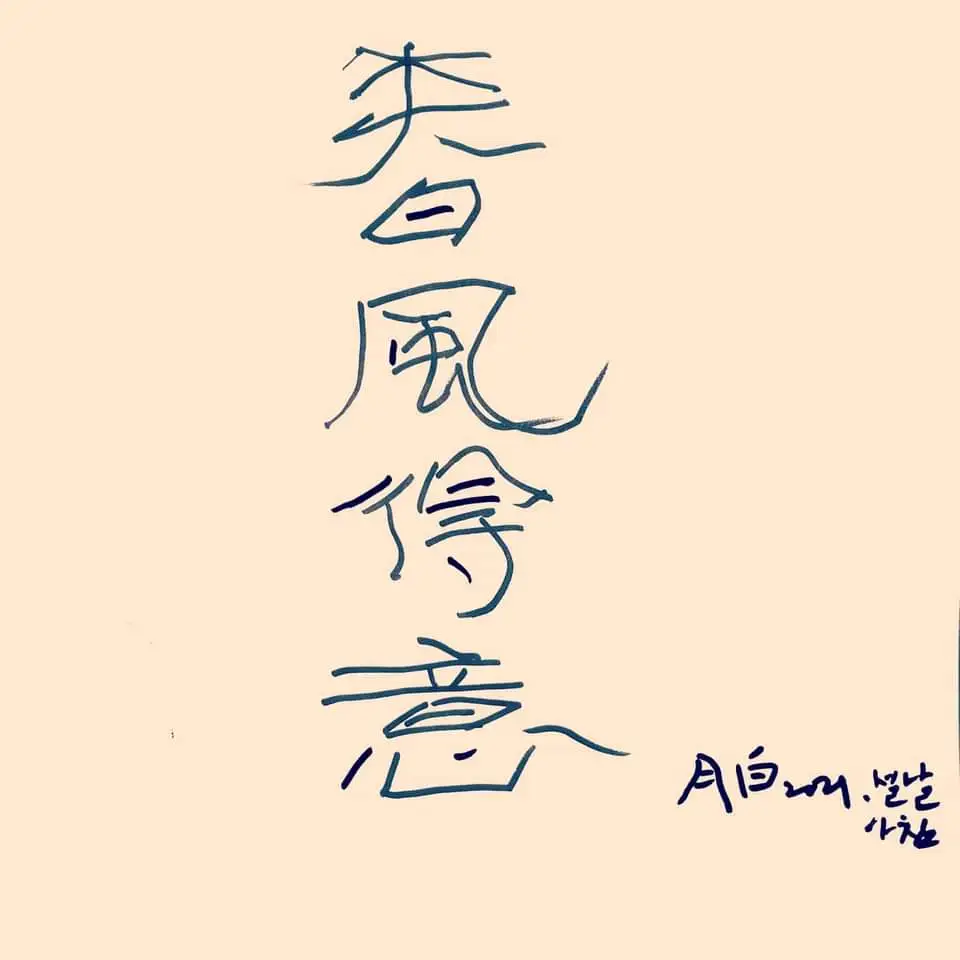 春風得意
月白 2021. 설날
아침